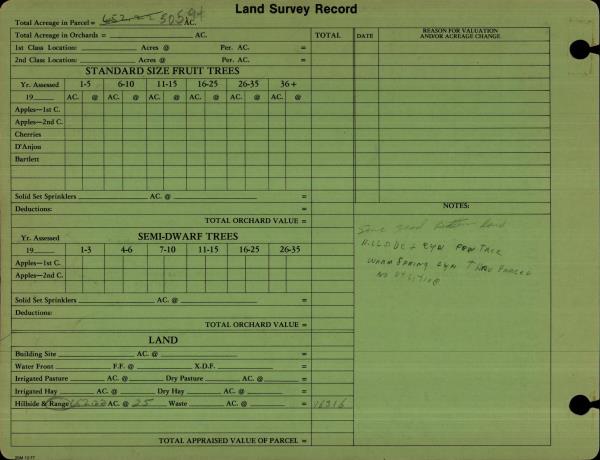 Land Survey Record
Total Acreage in Parcel = 505.94 AC.
Total Acreage in Orchards = AC. TOTAL DATE REASON FOR VALUATION AND/OR ACREAGE CHANGE
1st Class Location: Acres @ Per. AC. =
2nd Class Location: Acres @ Per. AC. =
STANDARD SIZE FRUIT TREES
Yr. Assessed 1-5 6-10 11-15 16-25 26-35 36+
19 AC. @ AC. @ AC. @ AC. @ AC. @ AC. @
Apples—1st C.
Apples—2nd C.
Cherries
D'Anjou
Bartlett
Solid Set Sprinklers AC. @ =
Deductions: =
TOTAL ORCHARD VALUE =
NOTES:
Some good bottom land
HILLSIDE &
WARM SPRING THRU PARCEL
NO
SEMI-DWARF TREES
Yr. Assessed
19 1-3 4-6 7-10 11-15 16-25 26-35
Apples—1st C.
Apples—2nd C.
Solid Set Sprinklers AC. @ =
Deductions:
TOTAL ORCHARD VALUE =
LAND
Building Site AC. @ =
Water Front F.F. @ X.D.F. =
Irrigated Pasture AC. @ Dry Pasture AC. @ =
Irrigated Hay AC. @ Dry Hay AC. @ =
Hillside & Range AC. @ 25 Waste AC. @ = 16316
TOTAL APPRAISED VALUE OF PARCEL =